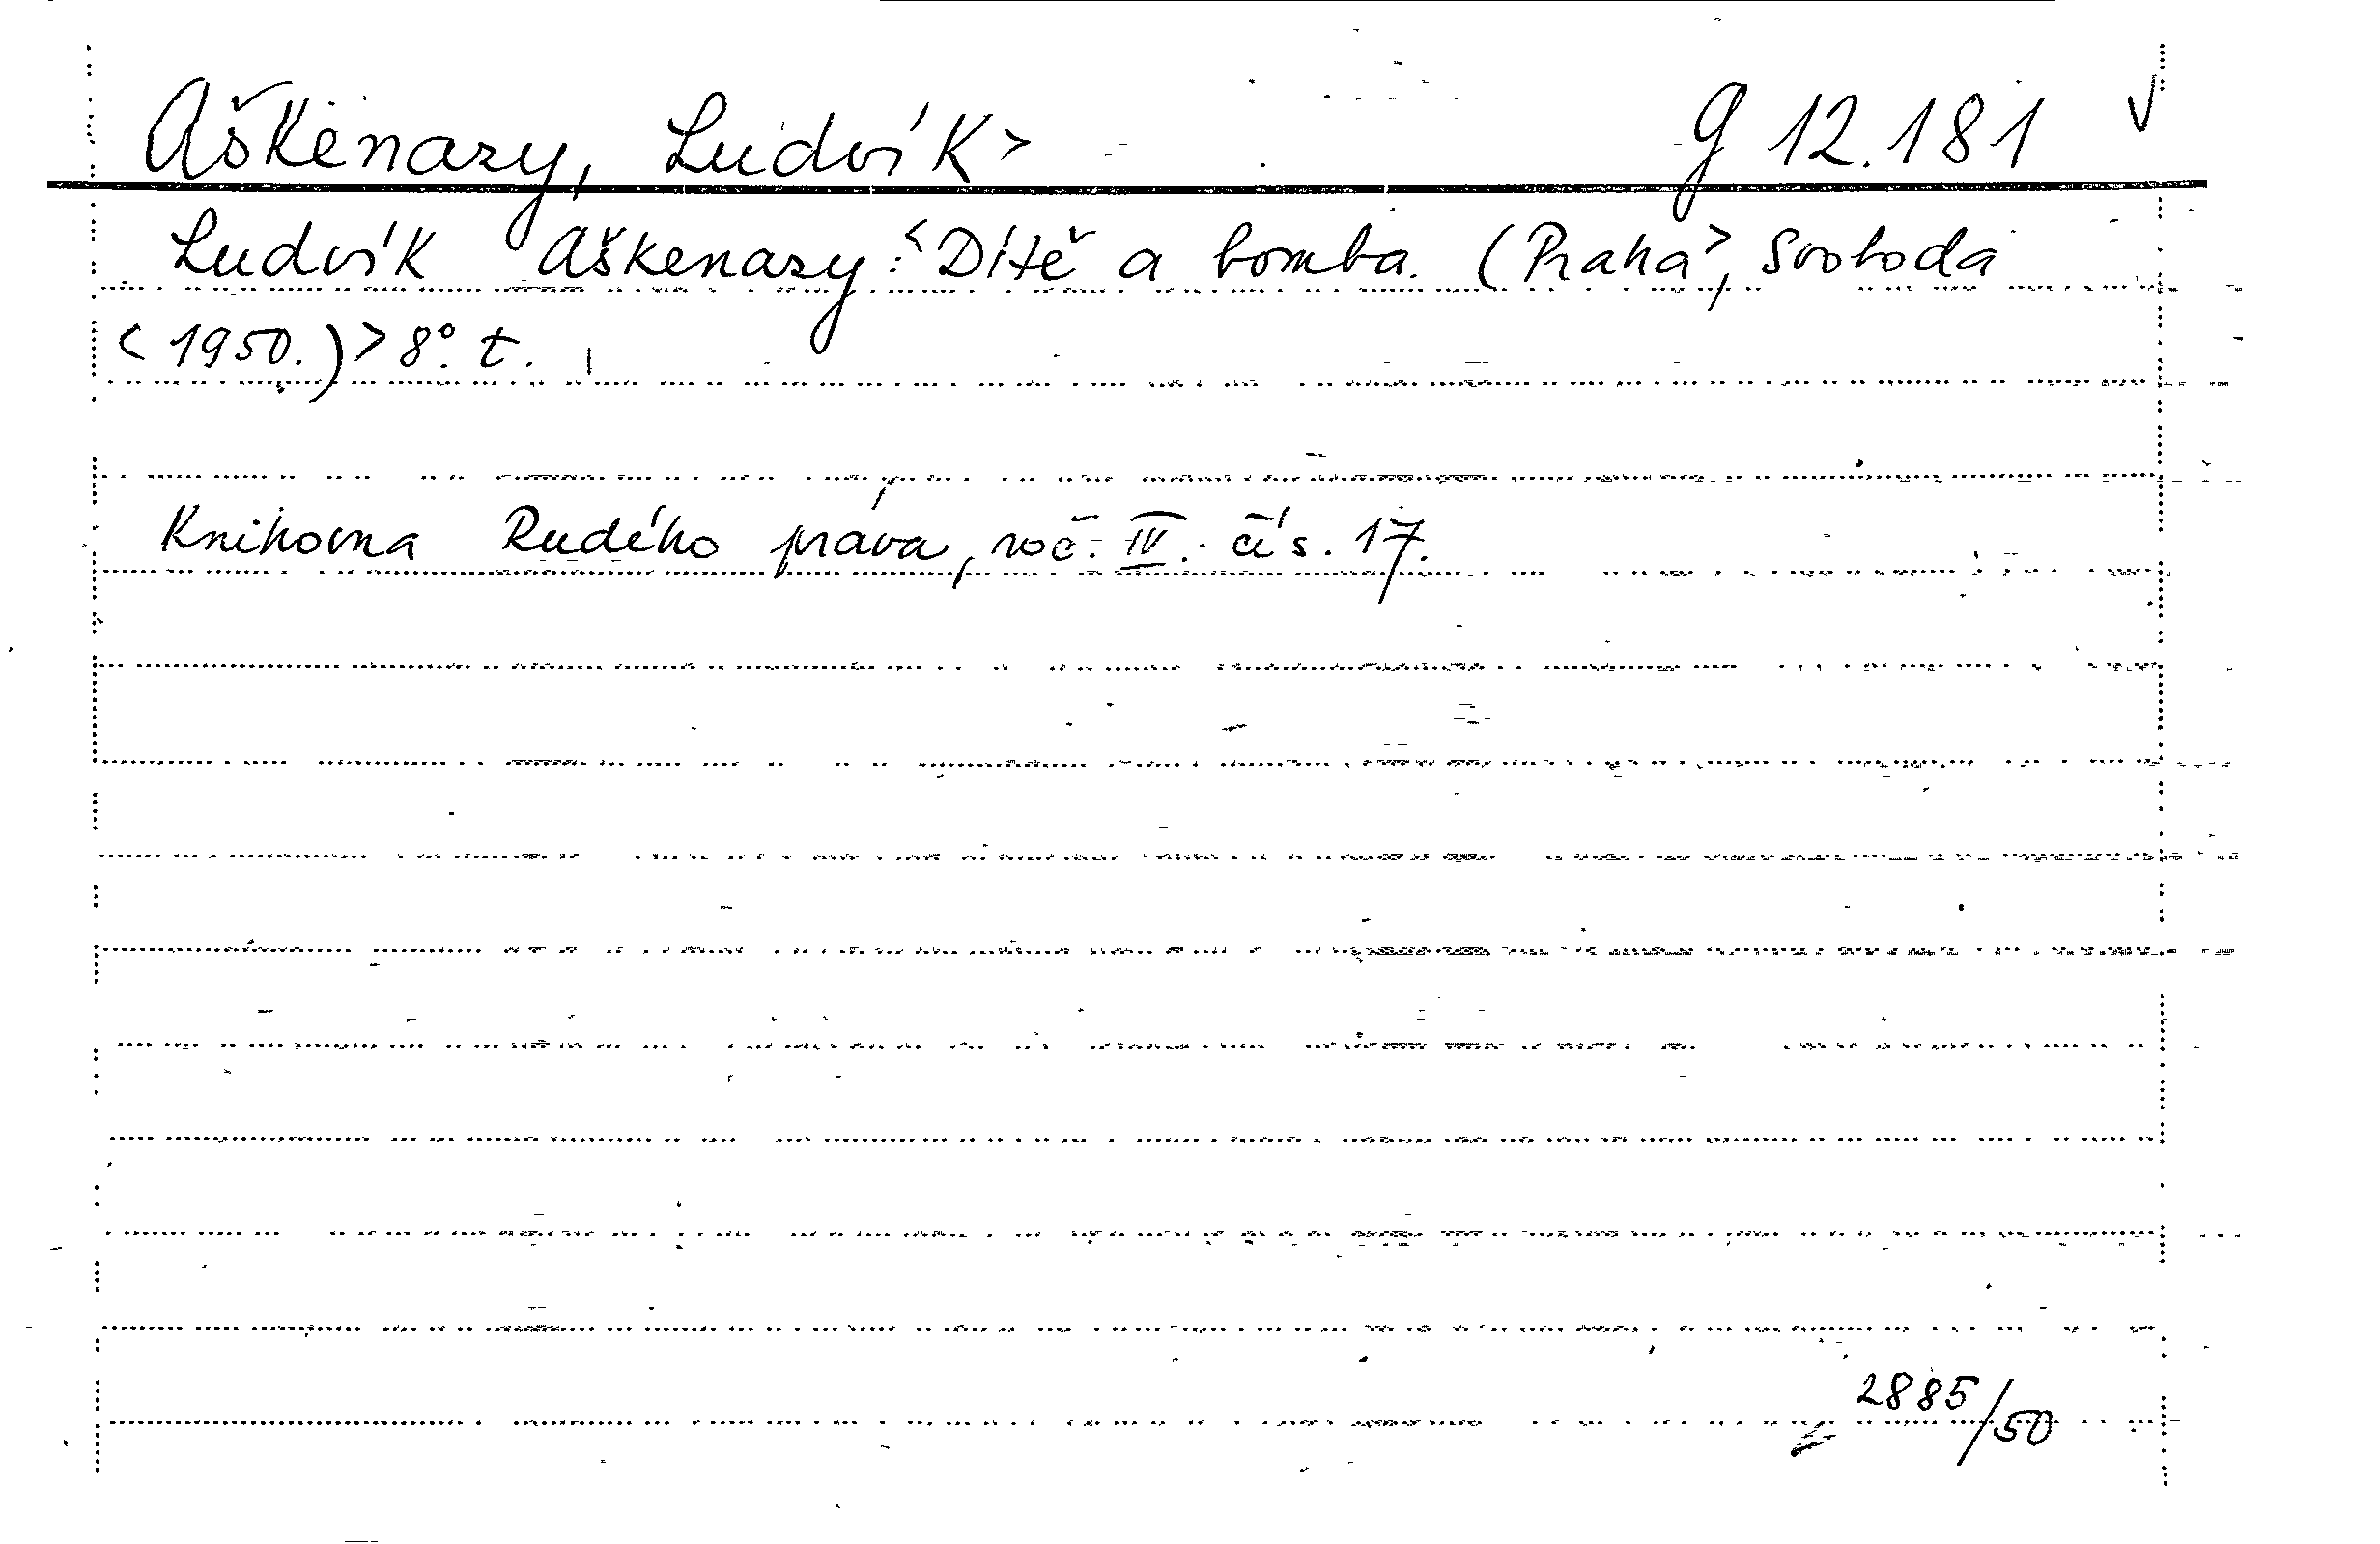 Aškenazy, Ludvík> g 12.181 ✓
Ludvík Aškenazy: <Dítě a bomba. (Praha>, Svoboda
<1950.)> 8°. t.
Knihovna Rudého práva, roč. IV. čís. 17.
2885/50